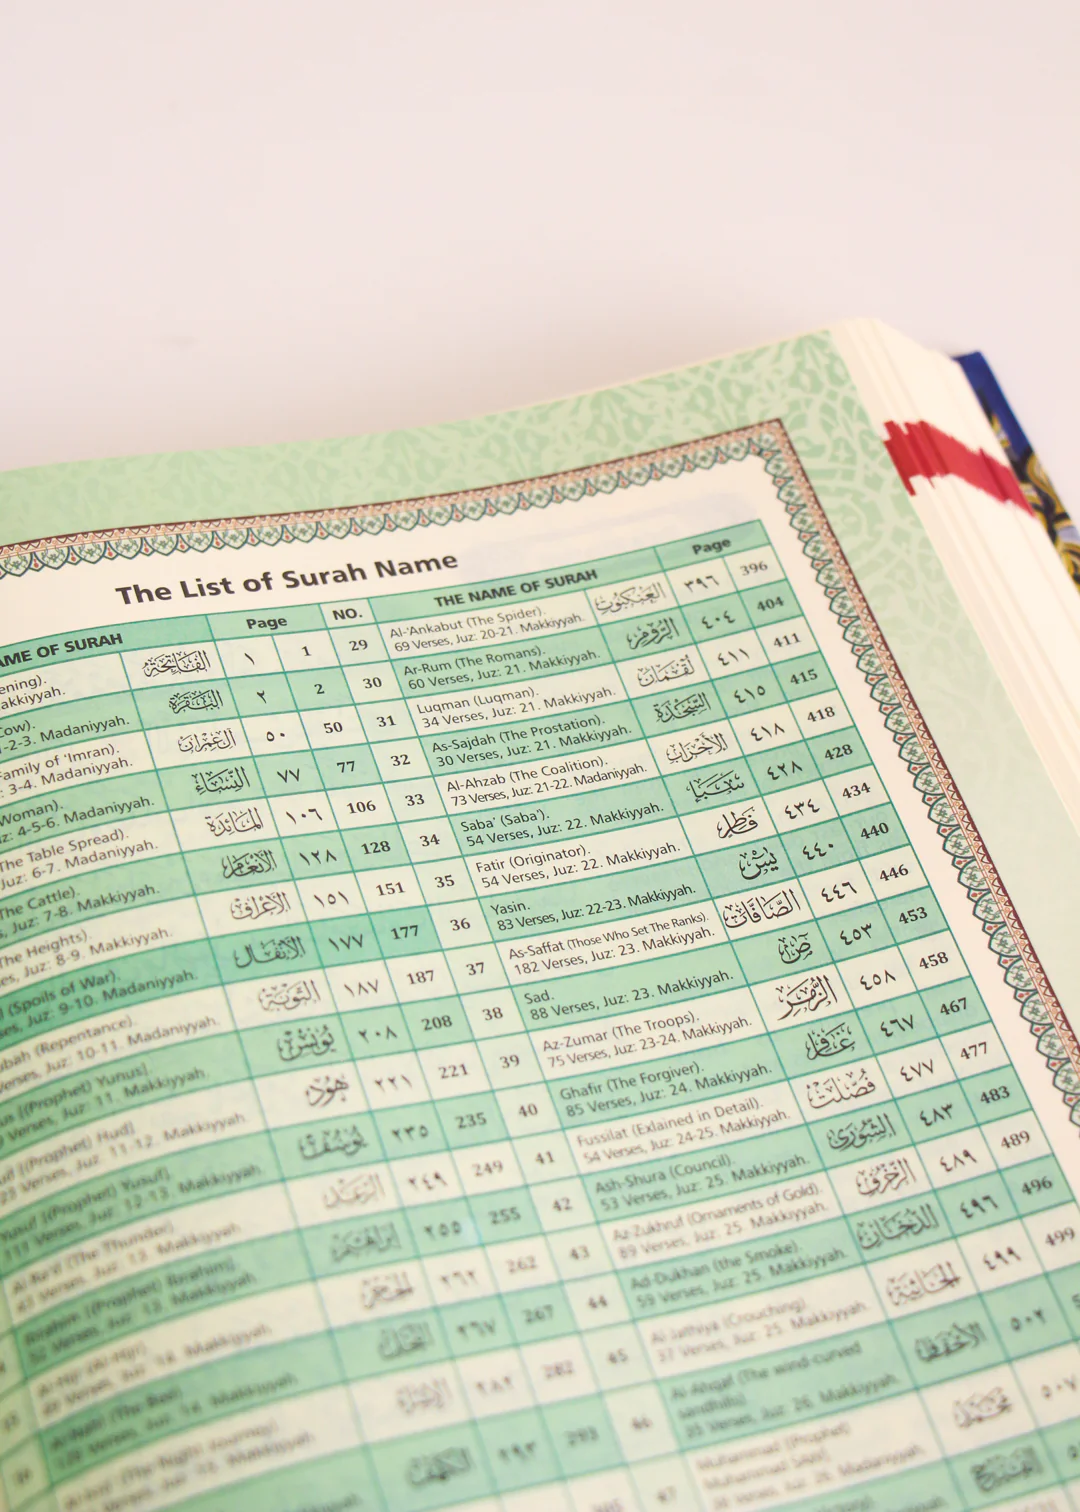 The List of Surah Name
NAME OF SURAH Page NO. THE NAME OF SURAH Page
الفاتحة ١ 1
akkiyyah.
البقرة ٢ 2
-2-3. Madaniyyah.
Family of 'Imran).
: 3-4. Madaniyyah.
آل عمران ٥٠ 50
Woman).
uz: 4-5-6. Madaniyyah.
النساء ٧٧ 77
The Table Spread).
Juz: 6-7. Madaniyyah.
المائدة ١٠٦ 106
The Cattle).
s, Juz: 7-8. Makkiyyah.
الأنعام ١٢٨ 128
The Heights).
es, Juz: 8-9. Makkiyyah.
الأعراف ١٥١ 151
(Spoils of War).
ses, Juz: 9-10. Madaniyyah.
الأنفال ١٧٧ 177
ubah (Repentance).
Verses, Juz: 10-11. Madaniyyah.
التوبة ١٨٧ 187
us [(Prophet) Yunus].
Verses, Juz: 11. Makkiyyah.
يونس ٢٠٨ 208
ud [(Prophet) Hud]
23 Verses, Juz: 11-12. Makkiyyah
هود ٢٢١ 221
Yusuf [(Prophet) Yusuf].
111 Verses, Juz: 12-13. Makkiyyah.
يوسف ٢٣٥ 235
Ar-Ra'd (The Thunder).
43 Verses, Juz: 13. Makkiyyah.
الرعد ٢٤٩ 249
Ibrahim [(Prophet) Ibrahim].
52 Verses, Juz: 13. Makkiyyah.
إبراهيم ٢٥٥ 255
Al-Hijr (Al-Hijr)
Verses, Juz: 14. Makkiyyah.
الحجر ٢٦٢ 262
Verses, Juz: 14. Makkiyyah.
النحل ٢٦٧ 267
(The Night Journey)
الإسراء ٢٨٢ 282
الكهف ٢٩٣ 293
29 Al-'Ankabut (The Spider).
69 Verses, Juz: 20-21. Makkiyyah.
العنكبوت ٣٩٦ 396
30 Ar-Rum (The Romans).
60 Verses, Juz: 21. Makkiyyah.
الروم ٤٠٤ 404
31 Luqman (Luqman).
34 Verses, Juz: 21. Makkiyyah.
لقمان ٤١١ 411
32 As-Sajdah (The Prostation).
30 Verses, Juz: 21. Makkiyyah.
السجدة ٤١٥ 415
33 Al-Ahzab (The Coalition).
73 Verses, Juz: 21-22. Madaniyyah.
الأحزاب ٤١٨ 418
34 Saba' (Saba').
54 Verses, Juz: 22. Makkiyyah.
سبأ ٤٢٨ 428
35 Fatir (Originator).
54 Verses, Juz: 22. Makkiyyah.
فاطر ٤٣٤ 434
36 Yasin.
83 Verses, Juz: 22-23. Makkiyyah.
يس ٤٤٠ 440
37 As-Saffat (Those Who Set The Ranks).
182 Verses, Juz: 23. Makkiyyah.
الصافات ٤٤٦ 446
38 Sad.
88 Verses, Juz: 23. Makkiyyah.
ص ٤٥٣ 453
39 Az-Zumar (The Troops).
75 Verses, Juz: 23-24. Makkiyyah.
الزمر ٤٥٨ 458
40 Ghafir (The Forgiver).
85 Verses, Juz: 24. Makkiyyah.
غافر ٤٦٧ 467
41 Fussilat (Exlained in Detail).
54 Verses, Juz: 24-25. Makkiyyah.
فصلت ٤٧٧ 477
42 Ash-Shura (Council).
53 Verses, Juz: 25. Makkiyyah.
الشورى ٤٨٣ 483
43 Az-Zukhruf (Ornaments of Gold).
89 Verses, Juz: 25. Makkiyyah.
الزخرف ٤٨٩ 489
44 Ad-Dukhan (the Smoke).
59 Verses, Juz: 25. Makkiyyah.
الدخان ٤٩٦ 496
45 Al-Jathiya (Crouching).
37 Verses, Juz: 25. Makkiyyah.
الجاثية ٤٩٩ 499
46 Al-Ahqaf (The wind-curved
sandhills)
35 Verses, Juz: 26. Makkiyyah.
الأحقاف ٥٠٢
47 Muhammad [(Prophet)
Muhammad SAW]
38 Verses, Juz: 26. Madaniyyah.
محمد ٥٠٧
الفتح